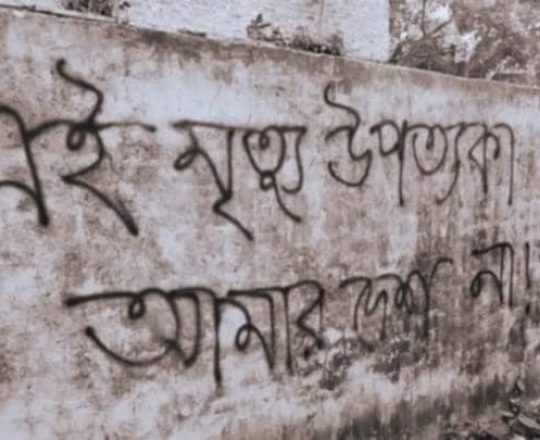 এই মৃত্যু উপত্যকা
আমার দেশ না!